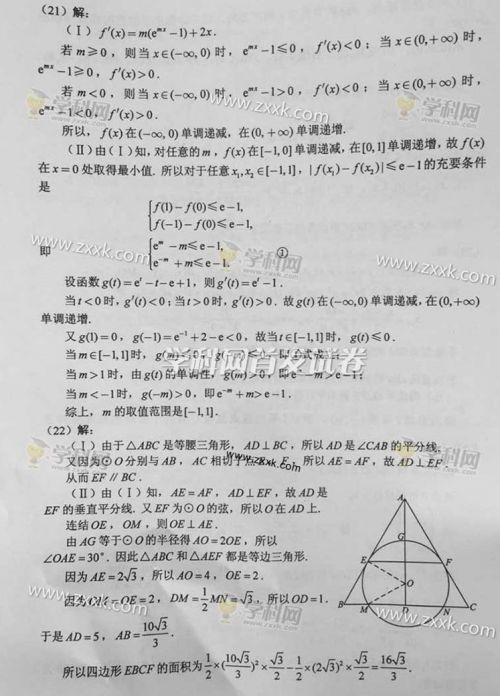 (21)解:
(Ⅰ) f′(x)=m(eᵐˣ−1)+2x.
若 m⩾0，则当 x∈(−∞,0) 时，eᵐˣ−1⩽0，f′(x)<0；当 x∈(0,+∞) 时，
eᵐˣ−1⩾0，f′(x)>0.
若 m<0，则当 x∈(−∞,0) 时，eᵐˣ−1>0，f′(x)<0；当 x∈(0,+∞) 时，
eᵐˣ−1<0，f′(x)>0.
所以，f(x)在(−∞,0)单调递减，在(0,+∞)单调递增.
(Ⅱ)由(Ⅰ)知，对任意的 m，f(x)在[−1,0]单调递减，在[0,1]单调递增，故 f(x)
在 x=0 处取得最小值. 所以对于任意 x₁,x₂∈[−1,1]，|f(x₁)−f(x₂)|⩽e−1的充要条件
是
f(1)−f(0)⩽e−1,
f(−1)−f(0)⩽e−1,
即
eᵐ−m⩽e−1,
e⁻ᵐ+m⩽e−1.
①
设函数 g(t)=eᵗ−t−e+1，则g′(t)=eᵗ−1.
当 t<0 时，g′(t)<0；当 t>0 时，g′(t)>0. 故 g(t) 在(−∞,0)单调递减，在(0,+∞)
单调递增.
又 g(1)=0，g(−1)=e⁻¹+2−e<0，故当 t∈[−1,1] 时，g(t)⩽0.
当 m∈[−1,1] 时，g(m)⩽0，g(−m)⩽0，即①式成立；
当 m>1 时，由 g(t) 的单调性，g(m)>0，即 eᵐ−m>e−1；
当 m<−1 时，g(−m)>0，即 e⁻ᵐ+m>e−1.
综上，m 的取值范围是[−1,1].
(22)解:
(Ⅰ)由于△ABC是等腰三角形，AD⊥BC，所以AD是∠CAB的平分线.
又因为⊙O分别与AB，AC相切于点E，F，所以AE=AF，故AD⊥EF.
从而EF∥BC.
(Ⅱ)由(Ⅰ)知，AE=AF，AD⊥EF，故AD是
EF的垂直平分线. 又EF为⊙O的弦，所以O在AD上.
连结OE，OM，则OE⊥AE.
由AG等于⊙O的半径得AO=2OE，所以
∠OAE=30°. 因此△ABC和△AEF都是等边三角形.
因为AE=2√3，所以AO=4，OE=2.
因为OM=OE=2，DM=1/2 MN=√3，所以OD=1.
于是AD=5，AB=10√3/3.
所以四边形EBCF的面积为1/2×(10√3/3)²×√3/2−1/2×(2√3)²×√3/2=16√3/3.
A
G
E
F
O
B
M
D
N
C
学科网
www.zxxk.com
学科网首发试卷